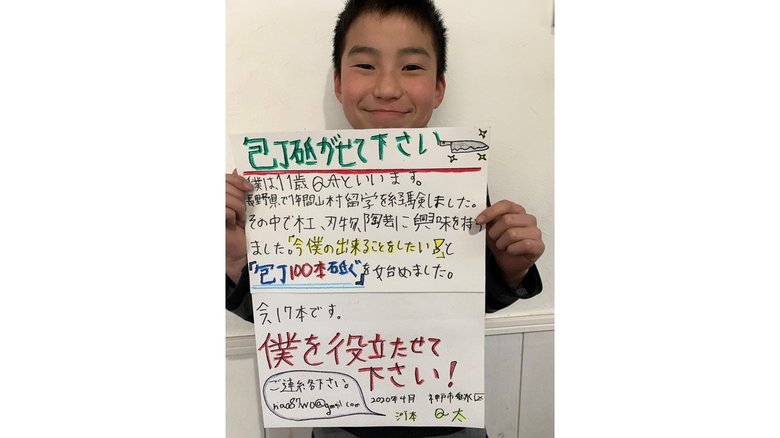 包丁砥がせて下さい
僕は11歳Q太といいます。
長野県で1年間山村留学を経験しました。
その中で木工、刃物、陶芸に興味を持ち
ました。「今僕の出来ることをしたい」と
「包丁100本砥ぐ」を始めました。
今、17本です。
僕を役立たせて
下さい!
ご連絡下さい。
2020年4月 神戸市垂水区
Q太